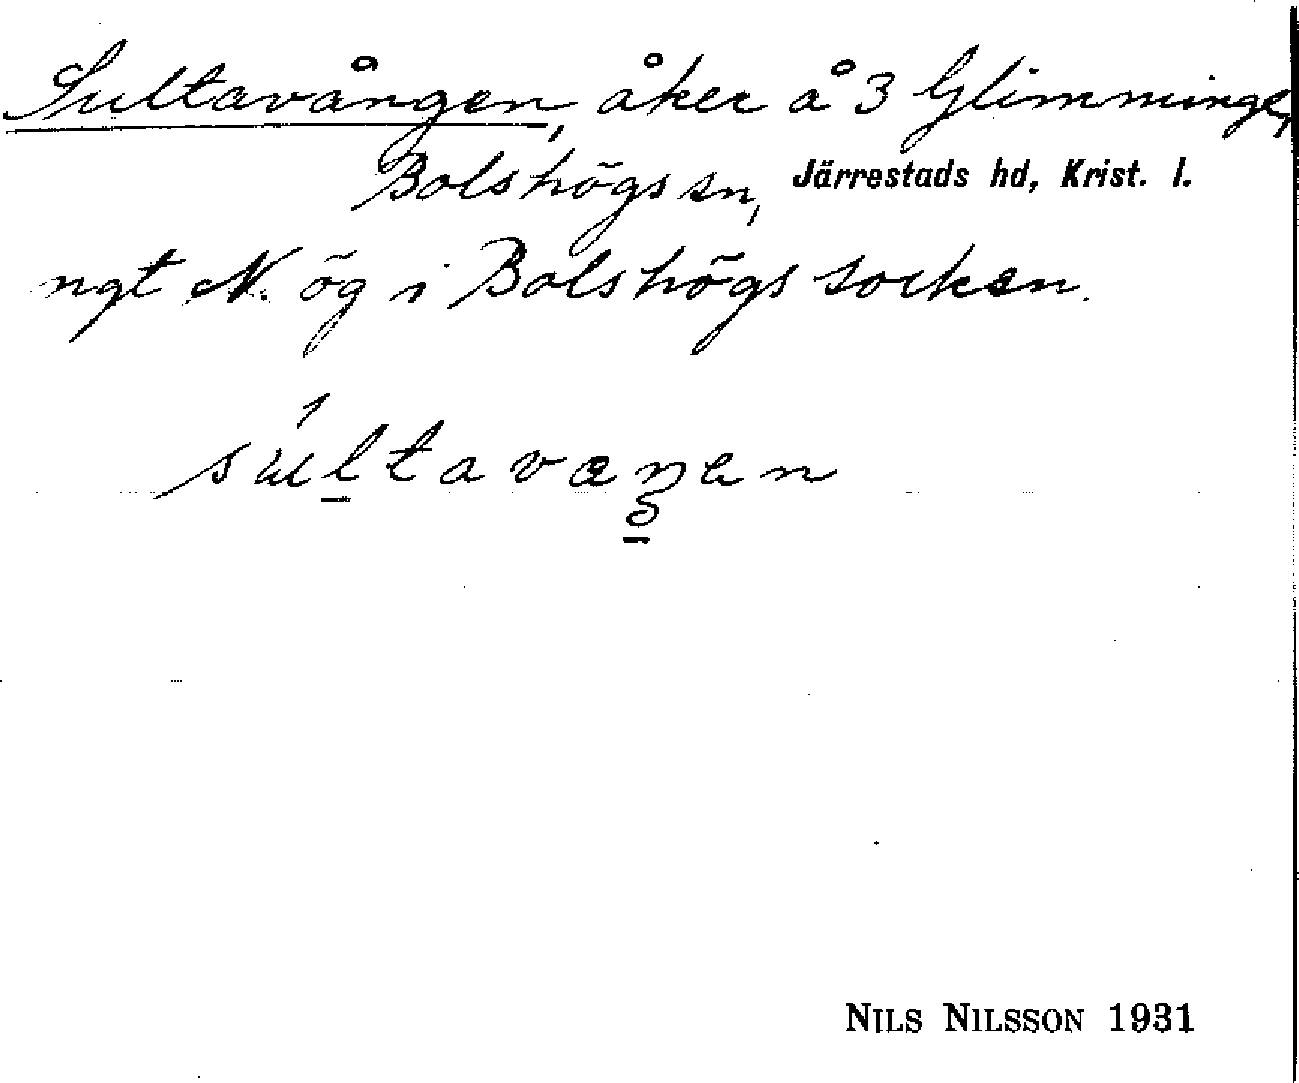 Sultavången, åker å 3 Glimminge,
Bolshögs sn, Järrestads hd, Krist. l.
ngt N. ög i Bolshögs socken.
sultavaŋen
NILS NILSSON 1931